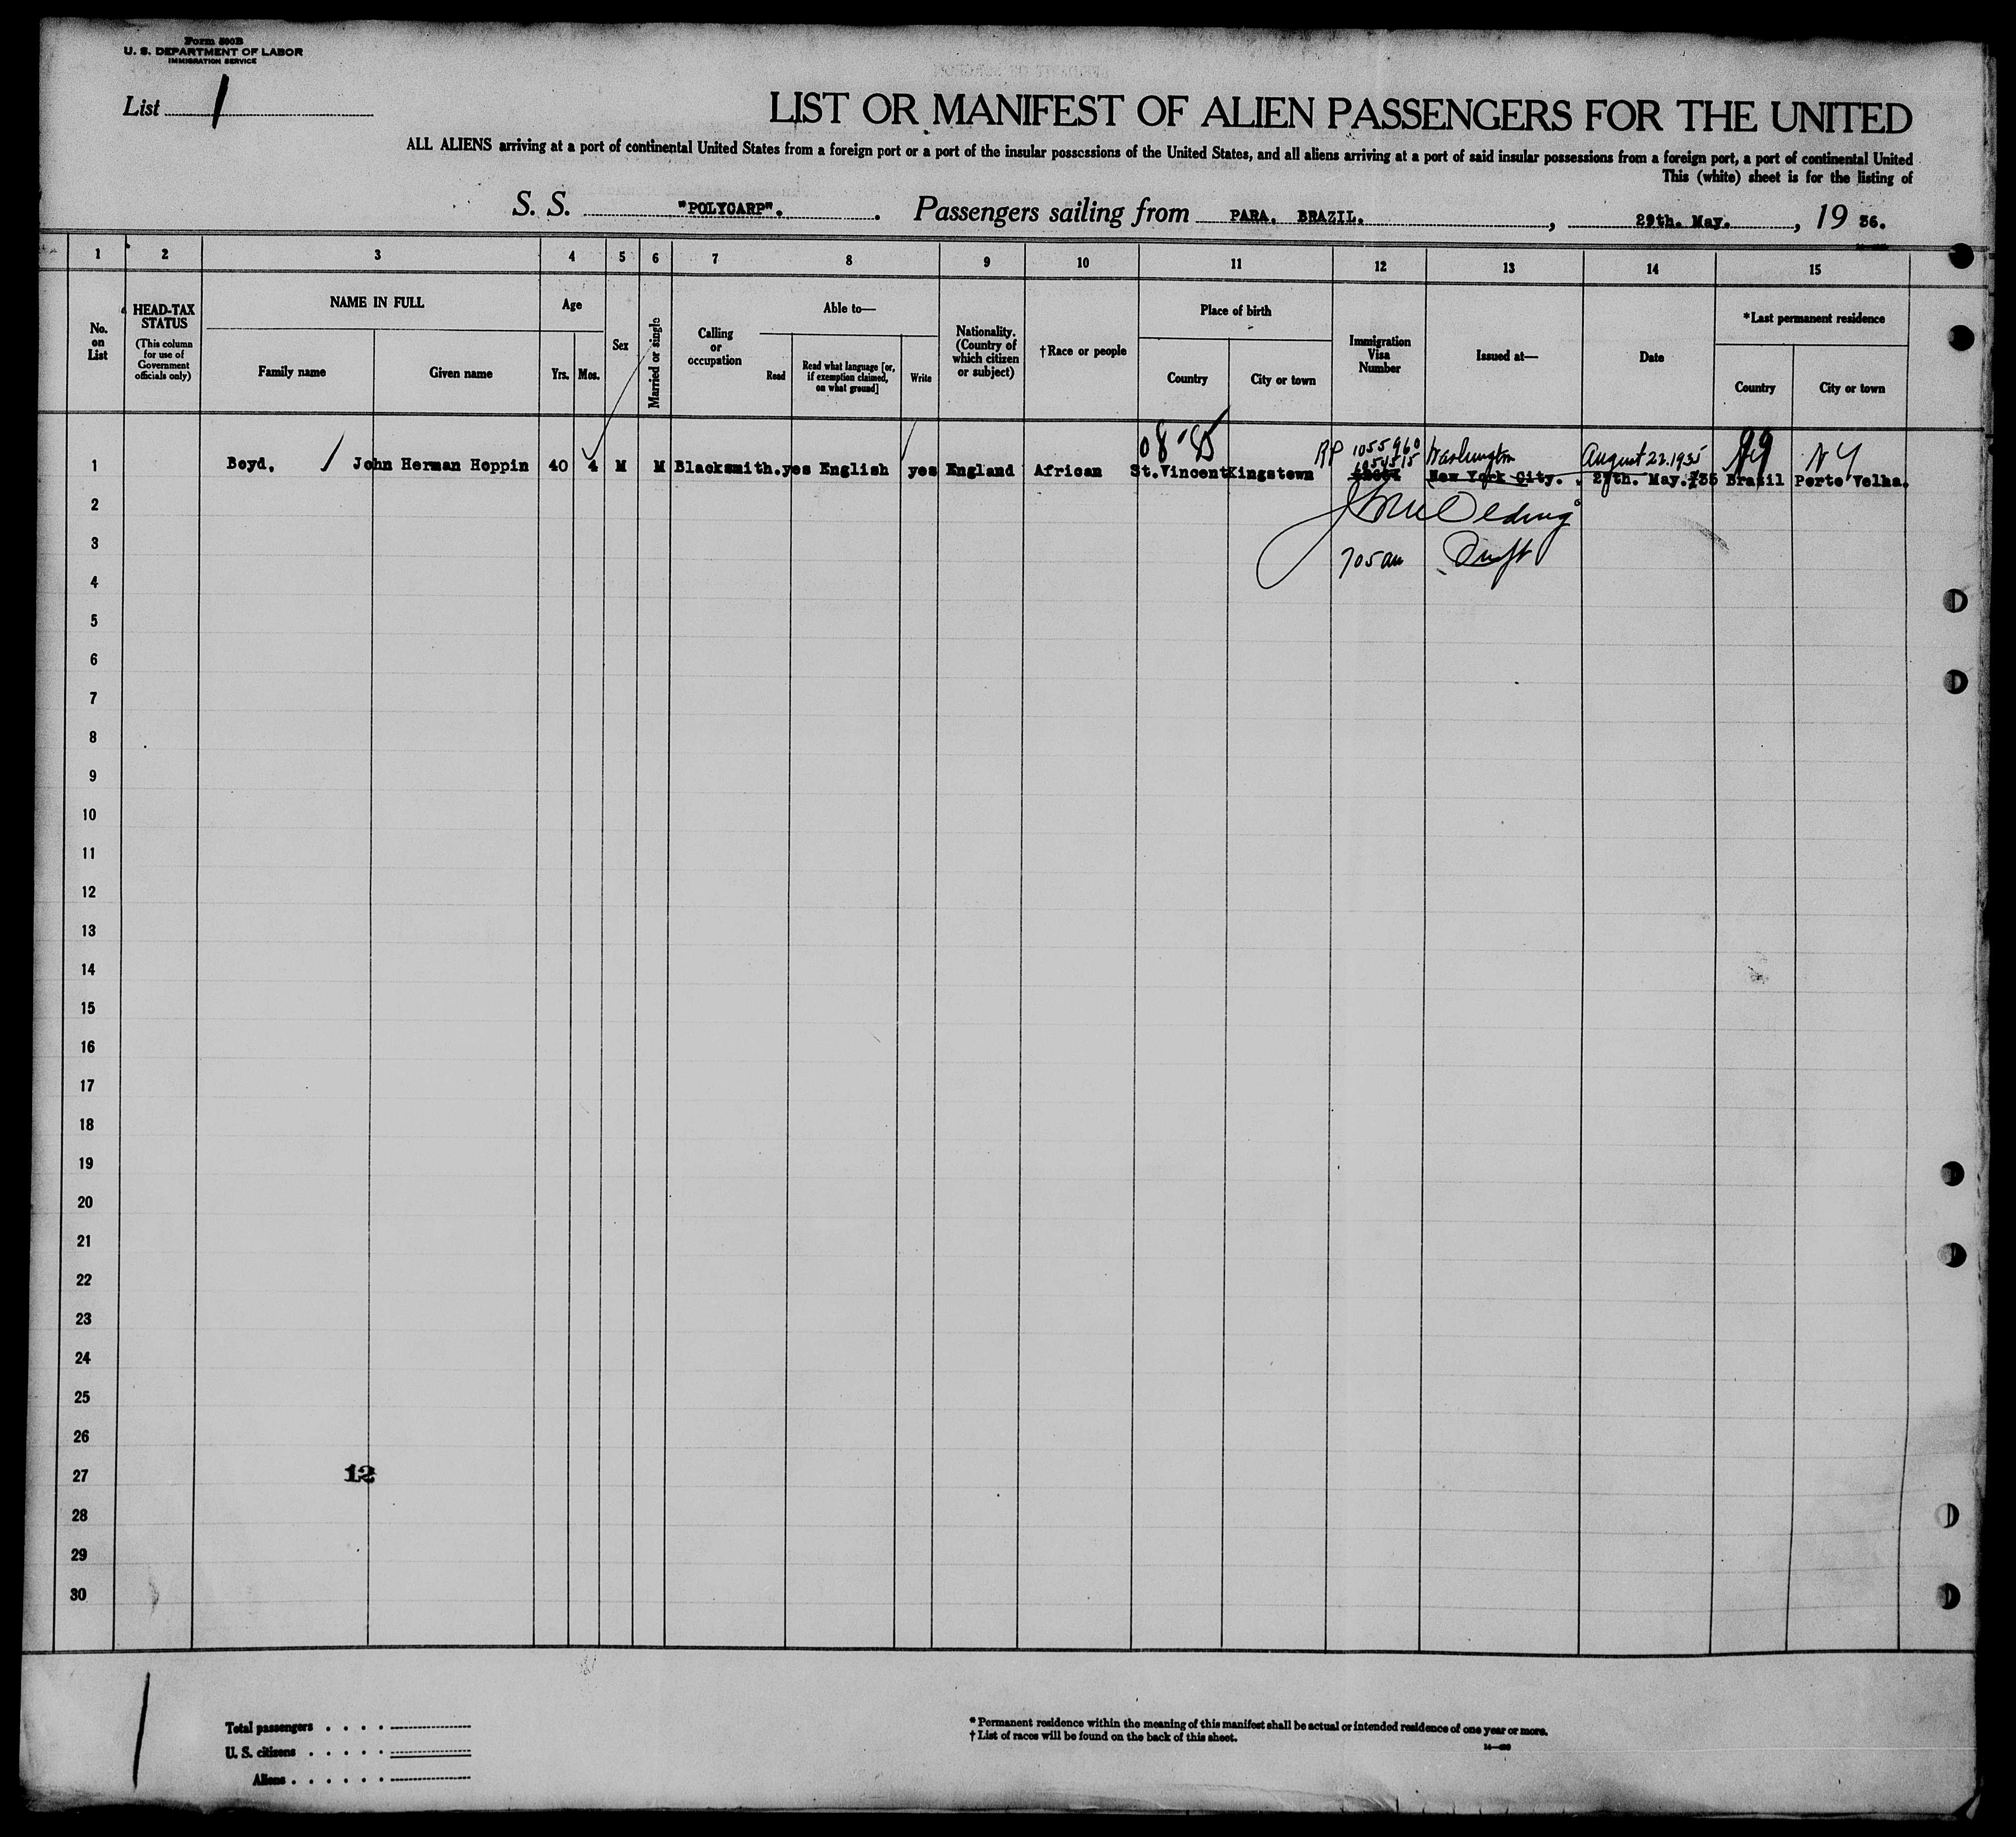 Form 500B
U. S. DEPARTMENT OF LABOR
IMMIGRATION SERVICE
List 1
LIST OR MANIFEST OF ALIEN PASSENGERS FOR THE UNITED
ALL ALIENS arriving at a port of continental United States from a foreign port or a port of the insular possessions of the United States, and all aliens arriving at a port of said insular possessions from a foreign port, a port of continental United
This (white) sheet is for the listing of
S. S. "POLYCARP". Passengers sailing from PARA. BRAZIL. , 29th. May. , 19 36.
1 2 3 4 5 6 7 8 9 10 11 12 13 14 15
No. on List
HEAD-TAX STATUS
(This column for use of Government officials only)
NAME IN FULL
Family name
Given name
Age
Yrs.
Mos.
Sex
Married or single
Calling or occupation
Able to—
Read
Read what language [or, if exemption claimed, on what ground]
Write
Nationality. (Country of which citizen or subject)
†Race or people
Place of birth
Country
City or town
Immigration Visa Number
Issued at—
Date
*Last permanent residence
Country
City or town
08-
RP 1055960 Washington August 22.1935 NY
1 Boyd. John Herman Hoppin 40 4 M M Blacksmith. yes English yes England African St.Vincent Kingstown New York City. 27th. May. 35 Brazil Porto Velha.
2
3
705 am
4
5
6
7
8
9
10
11
12
13
14
15
16
17
18
19
20
21
22
23
24
25
26
27
12
28
29
30
Total passengers . . . .
U. S. citizens . . . . .
Aliens . . . . . .
* Permanent residence within the meaning of this manifest shall be actual or intended residence of one year or more.
† List of races will be found on the back of this sheet.